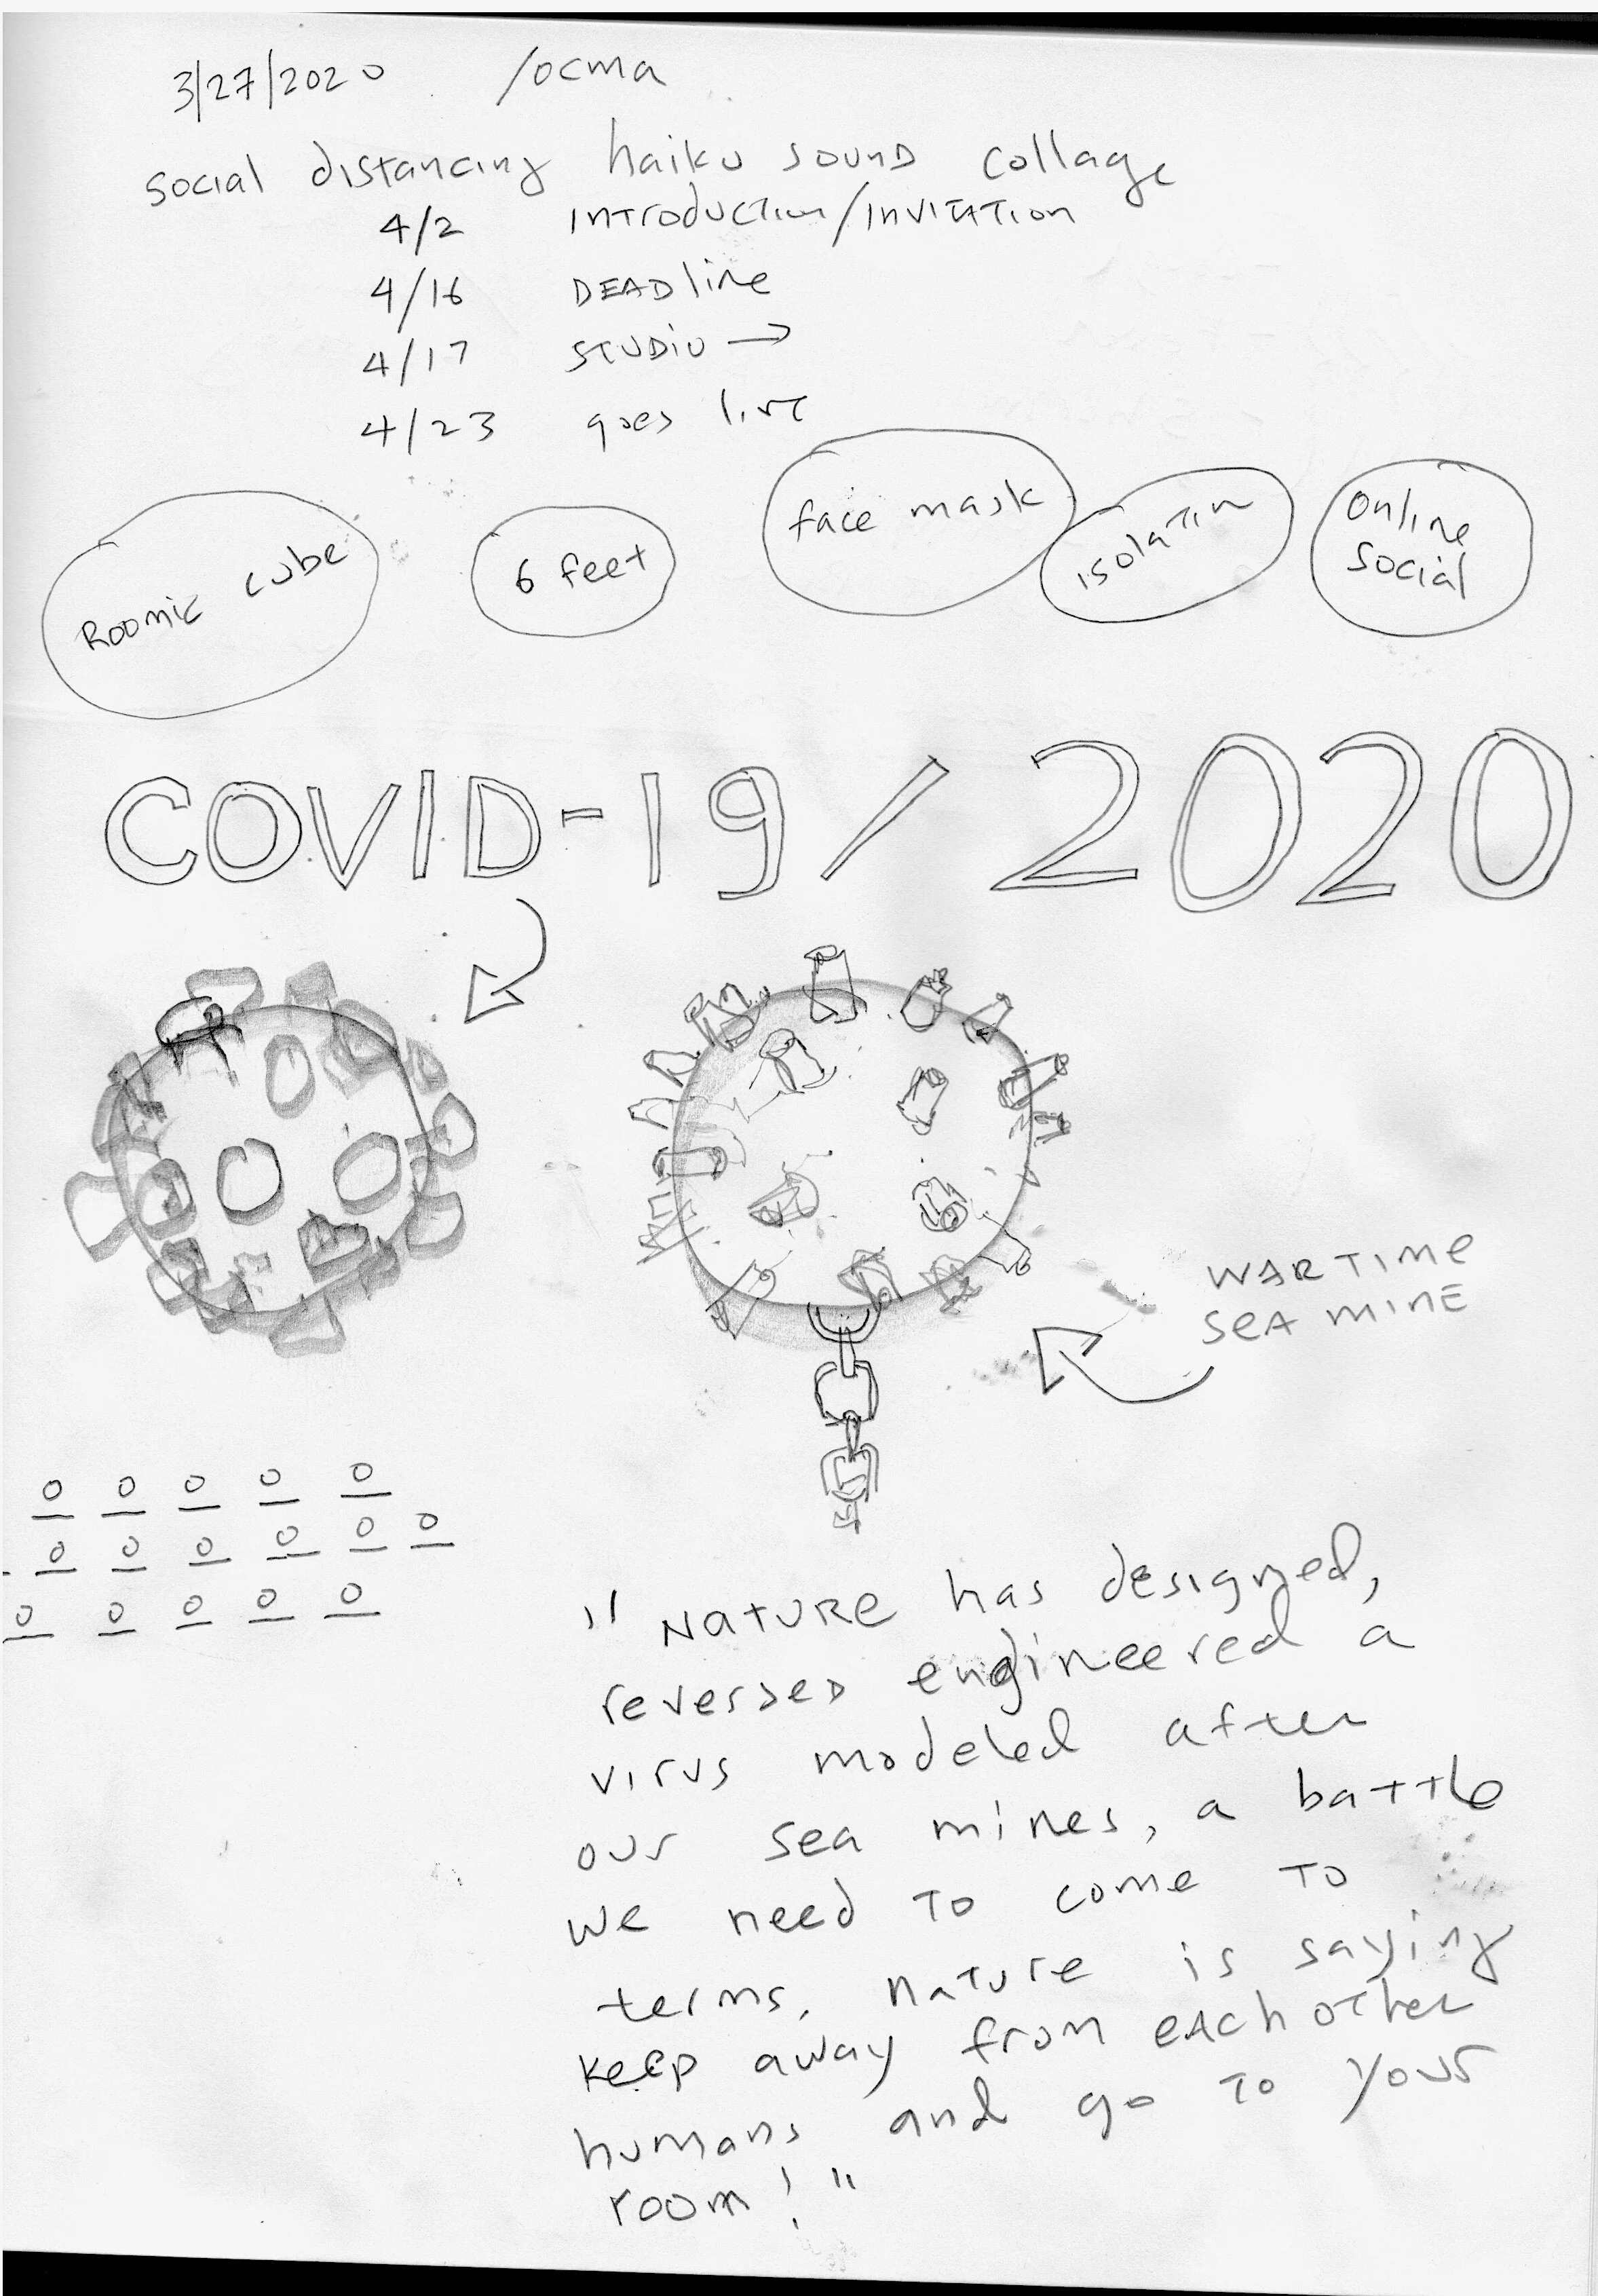 3/27/2020 /OCMA
social distancing haiku sound collage
4/2 Introduction/Invitation
4/16 DEADline
4/17 STUDIO →
4/23 goes live
Roomic cube
6 feet
face mask
isolation
Online
Social
COVID-19/2020
WARTIME
SEA MINE
"NATURE has designed,
reversed engineered a
virus modeled after
our sea mines, a battle
we need to come to
terms, nature is saying
keep away from each other
humans and go to your
room!"